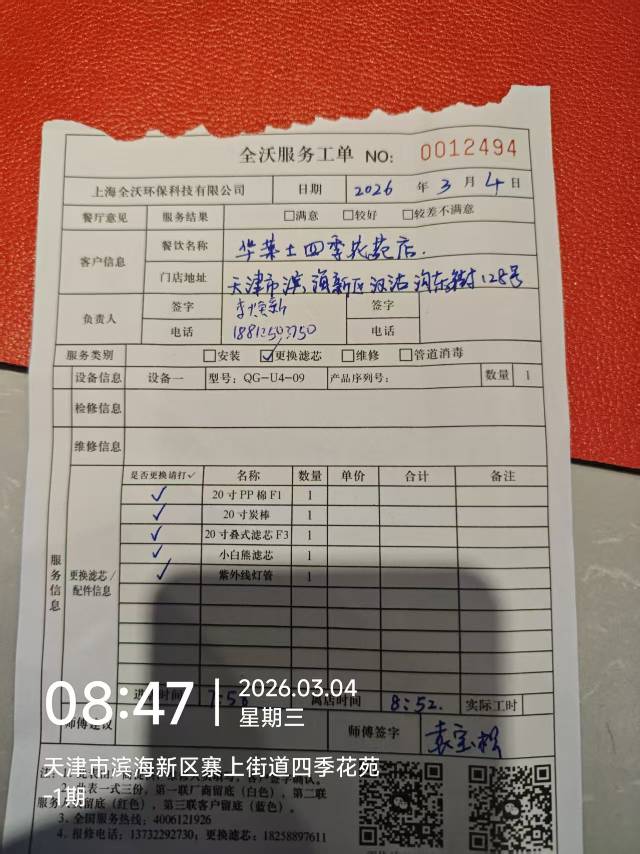 全沃服务工单 NO: 0012494
上海全沃环保科技有限公司 日期 2026 年 3 月 4 日
餐厅意见 服务结果 □满意 □较好 □较差不满意
客户信息 餐饮名称 华莱士四季花苑店.
门店地址 天津市滨海新区汉沽 128号
负责人 签字 李焕新 签字
电话 电话
服务类别 □安装 ☑更换滤芯 □维修 □管道消毒
设备信息 设备一 型号: QG-U4-09 产品序列号: 数量 1
检修信息
维修信息
服务信息 更换滤芯/配件信息 是否更换请打✓ 名称 数量 单价 合计 备注
✓ 20寸PP棉F1 1
✓ 20寸炭棒 1
✓ 20寸叠式滤芯F3 1
✓ 小白熊滤芯 1
✓ 紫外线灯管 1
时间 离店时间 8:52. 实际工时
师傅建议 师傅签字 袁宝松
08:47 2026.03.04
星期三
天津市滨海新区寨上街道四季花苑
-1期
2. 此表一式三份，第一联厂商留底（白色），第二联
留底（红色），第三联客户留底（蓝色）。
3. 全国服务热线: 4006121926
4. 报修电话: 13732292730; 更换滤芯: 18258897611